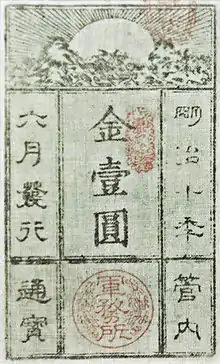 明治十秊
金壹圓
六月發行
管内
軍務所
通寶